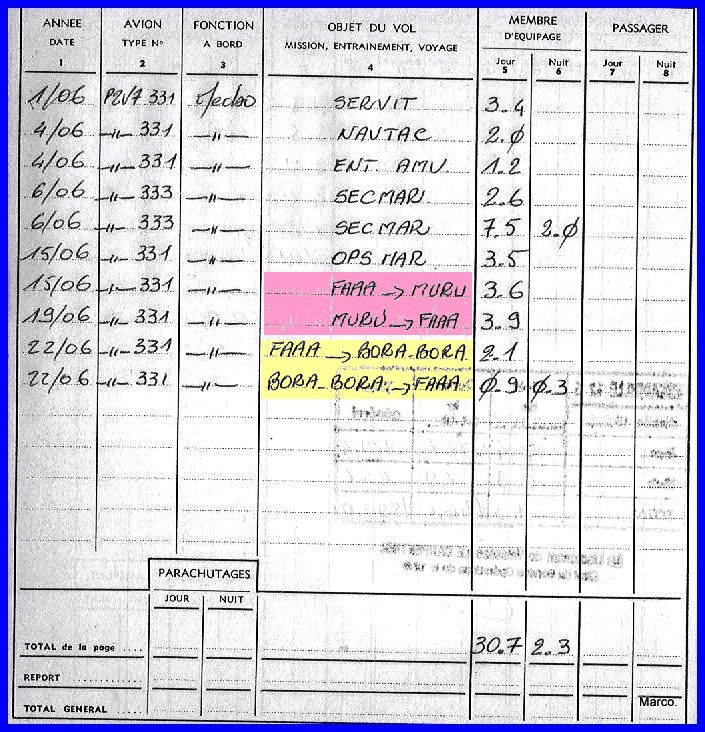 ANNEE AVION FONCTION OBJET DU VOL MEMBRE D'EQUIPAGE PASSAGER
DATE TYPE N° A BORD MISSION, ENTRAINEMENT, VOYAGE Jour Nuit Jour Nuit
1 2 3 4 5 6 7 8
1/06 P2V7 331 SERVIT 3.4
4/06 -"- 331 -"- NAVTAC 2.Ø
4/06 -"- 331 -"- ENT. AMV 1.2
6/06 -"- 333 -"- SECMAR 2.6
6/06 -"- 333 -"- SECMAR 7.5 2.Ø
15/06 -"- 331 -"- OPS MAR 3.5
15/06 -"- 331 -"- FAAA → MURU 3.6
19/06 -"- 331 -"- MURU → FAAA 3.9
22/06 -"- 331 -"- FAAA → BORA-BORA 2.1
22/06 -"- 331 -"- BORA-BORA → FAAA Ø.9 Ø.3
PARACHUTAGES
JOUR NUIT
TOTAL de la page .... 30.7 2.3
REPORT
TOTAL GENERAL
Marco.